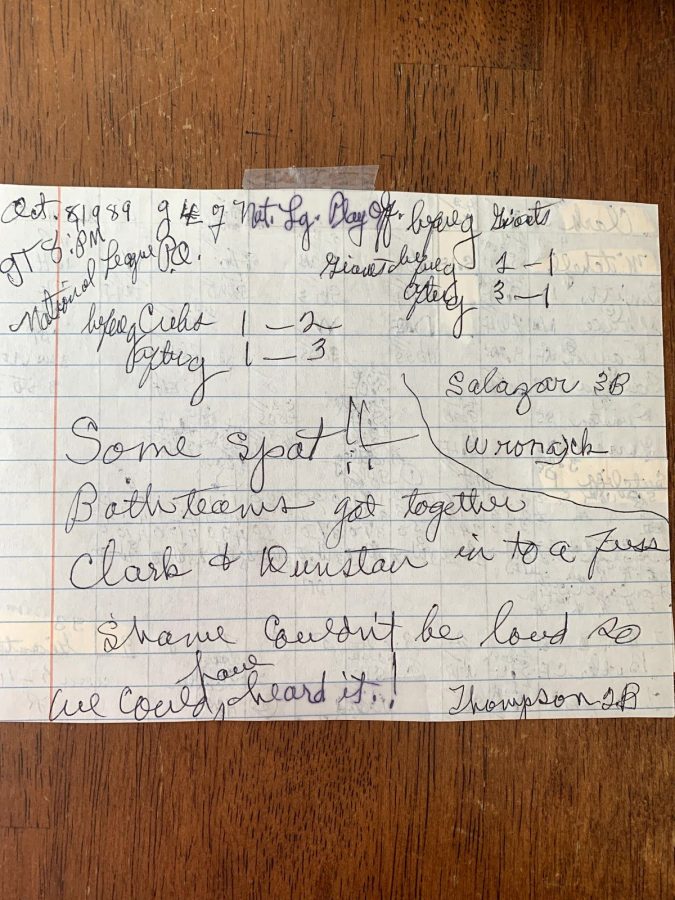 Oct. 8, 1989 g 4 of 7 Nat. Lg. Play Off. Giants
gT 8:PM
National League P.O.
Giants bfg 2 — 1
aftrg 3 — 1
bfg Cubs 1 — 2
aftrg 1 — 3
Salazar 3B
Some spat!!
Wrona ch
Both teams got together
Clark & Dunstan in to a Fuss
Shame Couldn't be loud so
we could have heard it.!
Thompson 2B